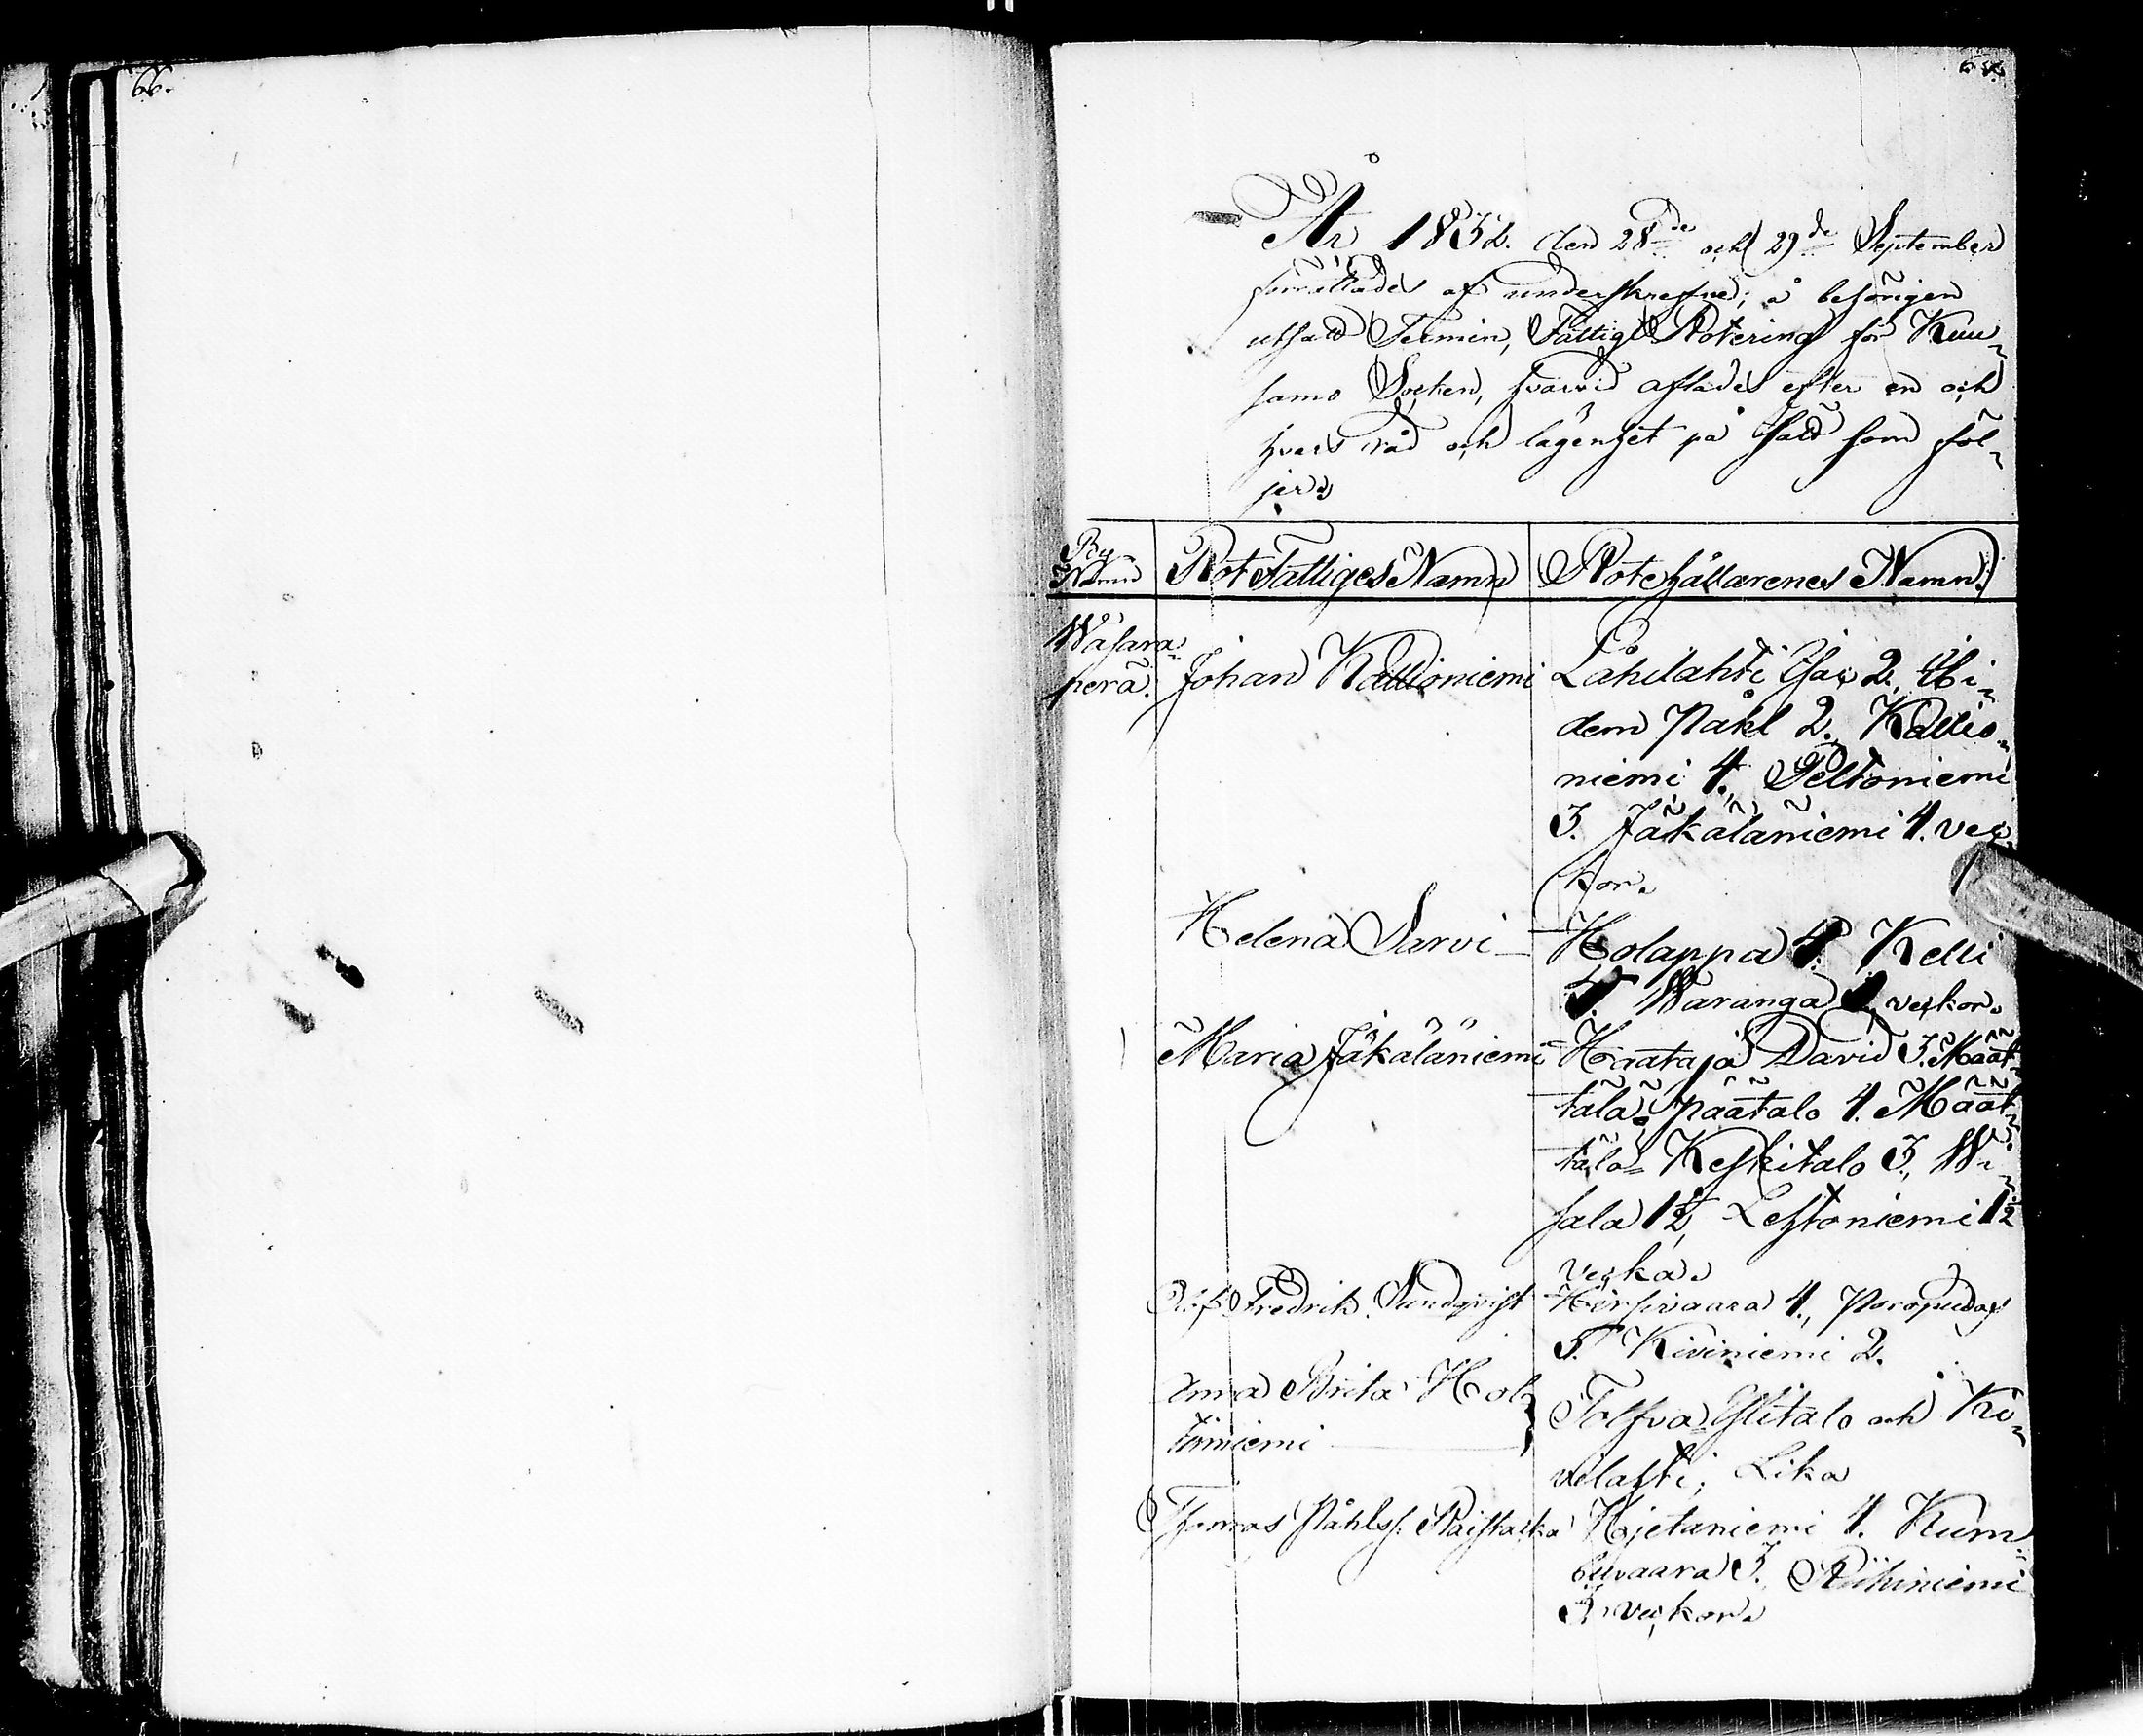 66.
År 1832. den 28de och 29de September
förrättades af underskrefne, å behörigen
utsatt Termin, Fattige Rotering för Kuu¬
samo Socken, hvarvid aftades efter en och
hvars råd och lägenhet på sätt som föl¬
jer:
By
Namn
Rot Fattiges Namn
Rotehållarenes Namn.
Wasara¬
perä.
Johan Kallioniemi
Lahilahti Isac 2, Ibi¬
dem Påhl 2. Kallio¬
niemi 4. Peltoniemi
3. Jäkäläniemi 4. vec¬
kor.
Helena Sarvi
Holappa 4. Kelli
4. Waranga veckor.
Maria Jäkäläniemi
Haataja David 3. Määt¬
tälä päätalo 4. Määt¬
tälä Keskitalo 3., Wi¬
sala 1½, Lehtoniemi 1½
vecka.
Fredrik Sundqvist
Hirsivaara 4., Poropudas
5. Kiviniemi 2.
Anna Brita Hol¬
Tolfva Ylitalo och Ki¬
vilahti; Lika
Thomas Påhlss. Raistakka
Hjetaniemi 4. Kum¬
buvaara 3. Riihiniemi
3 veckor.